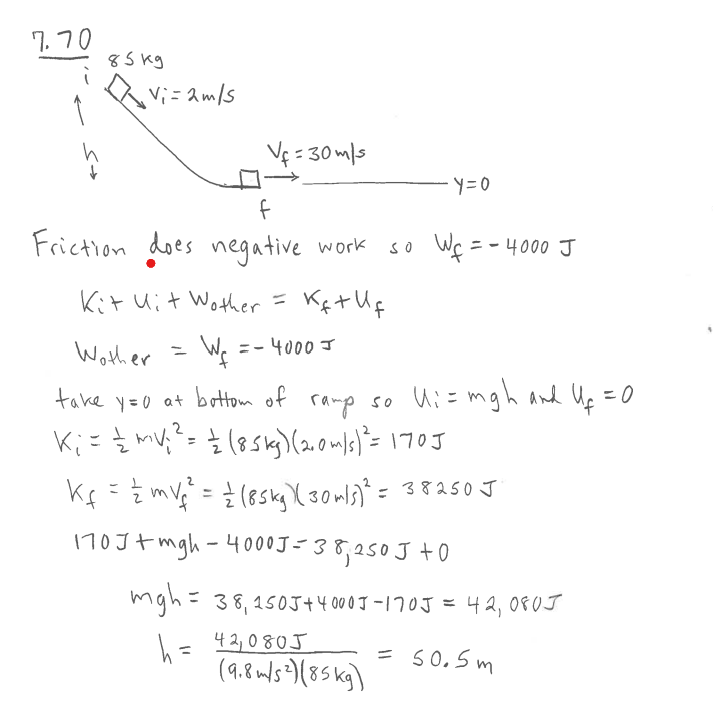 7.70
85kg
i
Vi = 2m/s
h
Vf = 30m/s
y=0
f
Friction does negative work so Wf = -4000 J
Ki + Ui + Wother = Kf + Uf
Wother = Wf = -4000 J
take y=0 at bottom of ramp so Ui = mgh and Uf = 0
Ki = 1/2 mVi² = 1/2 (85kg)(2.0m/s)² = 170J
Kf = 1/2 mVf² = 1/2 (85kg)(30m/s)² = 38250 J
170J + mgh - 4000J = 38,250J + 0
mgh = 38,250J + 4000J - 170J = 42,080J
h = 42,080J / (9.8m/s²)(85kg) = 50.5m